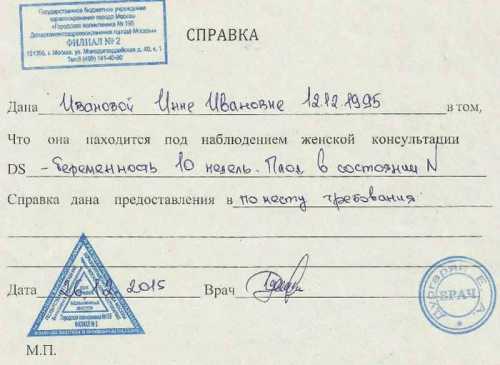 Государственное бюджетное учреждение
здравоохранения города Москвы
«Городская поликлиника № 195
Департамента здравоохранения города Москвы»
ФИЛИАЛ № 2
121356, г. Москва, ул. Молодогвардейская д. 40, к. 1
Тел. 8 (499) 141-40-90
СПРАВКА
Дана Ивановой Инне Ивановне 12.12.1995 в том,
Что она находится под наблюдением женской консультации
DS - беременность 10 недель. Плод в состоянии N
Справка дана предоставления в по месту требования
Дата 26.12.2015 Врач
Городская поликлиника № 195
ФИЛИАЛ № 2
ВРАЧ
М.П.